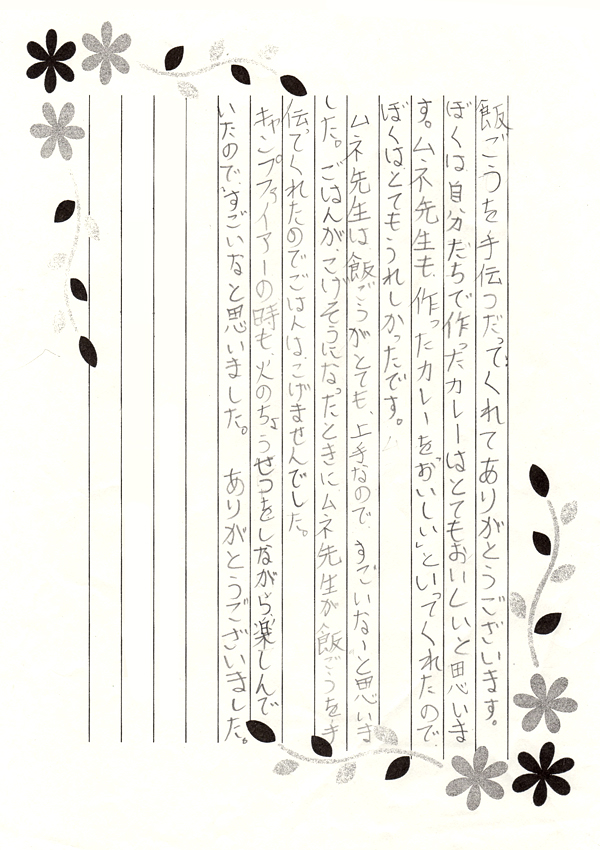 飯ごうを手伝つだってくれてありがとうございます。
ぼくは、自分たちで作ったカレーはとてもおいしいと思いま
す。ムネ先生も、作ったカレーを「おいしい」といってくれたので
ぼくは、とてもうれしかったです。
ムネ先生は、飯ごうがとても、上手なので、すごいなーと思いま
した。ごはんがこげそうになったときにムネ先生が飯ごうを手
伝ってくれたのでごはんは、こげませんでした。
キャンプファイアーの時も、火のちょうせつをしながら、楽しんで
いたので、すごいなと思いました。 ありがとうございました。